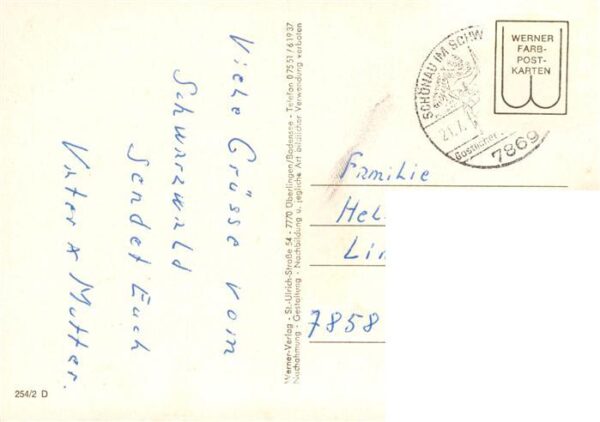 Viele Grüsse vom
Schwarzwald
Sendet Euch
Vater + Mutter.
254/2 D
Werner-Verlag - St.-Ulrich-Straße 54 - 7770 Überlingen/Bodensee - Telefon 07551/61937
Nachahmung - Gestaltung - Nachbildung u. jegliche Art bildlicher Verwendung verboten
SCHÖNAU IM SCHW
21.7.
Gastlicher
7869
WERNER
FARB-
POST-
KARTEN
Familie
Hel
Lin
7858